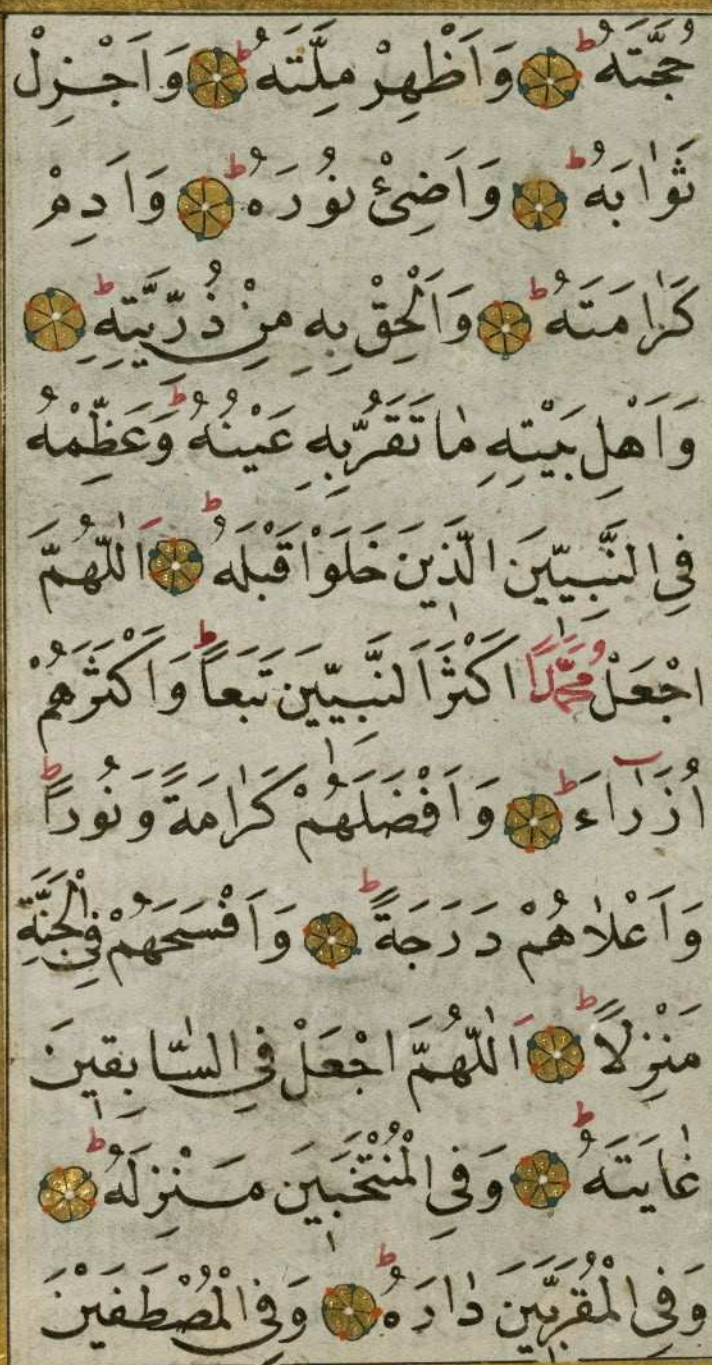 حُجَّتَهُ ط وَاَظْهِرْ مِلَّتَهُ ط وَاَجْزِلْ
ثَوٰابَهُ ط وَاَضِئْ نُورَهُ ط وَاَدِمْ
كَرٰامَتَهُ ط وَاَلْحِقْ بِهِ مِنْ ذُرِّيَّتِهِ ط
وَاَهْلِ بَيْتِهِ مٰا تَقَرُّ بِهِ عَيْنُهُ ط وَعَظِّمْهُ
فِي النَّبِيّينَ الَّذِينَ خَلَوْا قَبْلَهُ ط اَللّٰهُمَّ
اجْعَلْ مُحَمَّداً اَكْثَرَ النَّبِيّينَ تَبَعاً ط وَاَكْثَرَهُمْ
اُزَرٰاءَ ط وَاَفْضَلَهُمْ كَرٰامَةً وَنُوراً ط
وَاَعْلٰاهُمْ دَرَجَةً ط وَاَفْسَحَهُمْ فِي الْجَنَّةِ
مَنْزِلاً ط اَللّٰهُمَّ اجْعَلْ فِي السّٰابِقِينَ
غٰايَتَهُ ط وَفِي الْمُنْتَخَبِينَ مَنْزِلَهُ ط
وَفِي الْمُقَرَّبِينَ دٰارَهُ ط وَفِي الْمُصْطَفَيْنَ